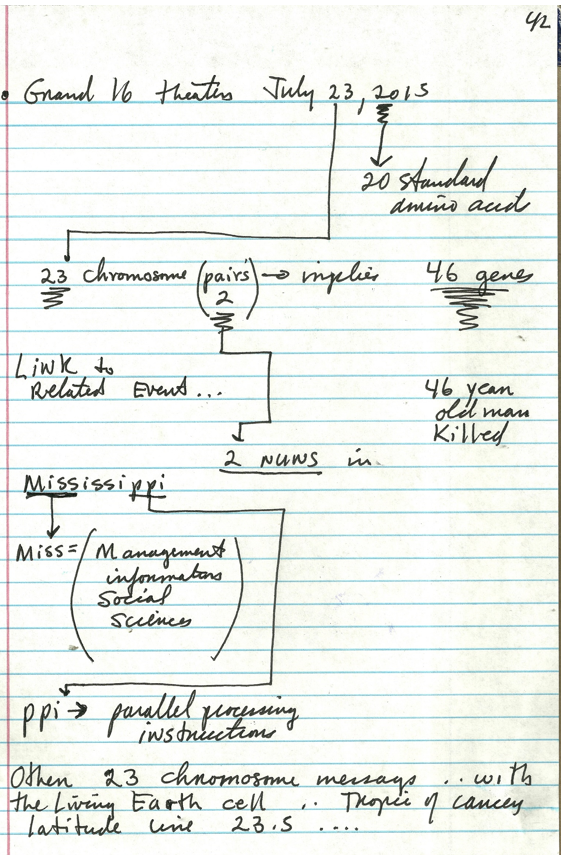 42
• Grand 16 theaters July 23, 2015
20 standard
amino acid
23 chromosome (pairs) → implies 46 genes
2
Link to
Related Event...
46 year
old man
Killed
2 NUNS in
Mississippi
Miss = (Management
informations
Social
Sciences)
ppi → parallel processing
instructions
Other 23 chromosome messages .. with
the Living Earth cell .. Tropic of cancer
latitude line 23.5 ....